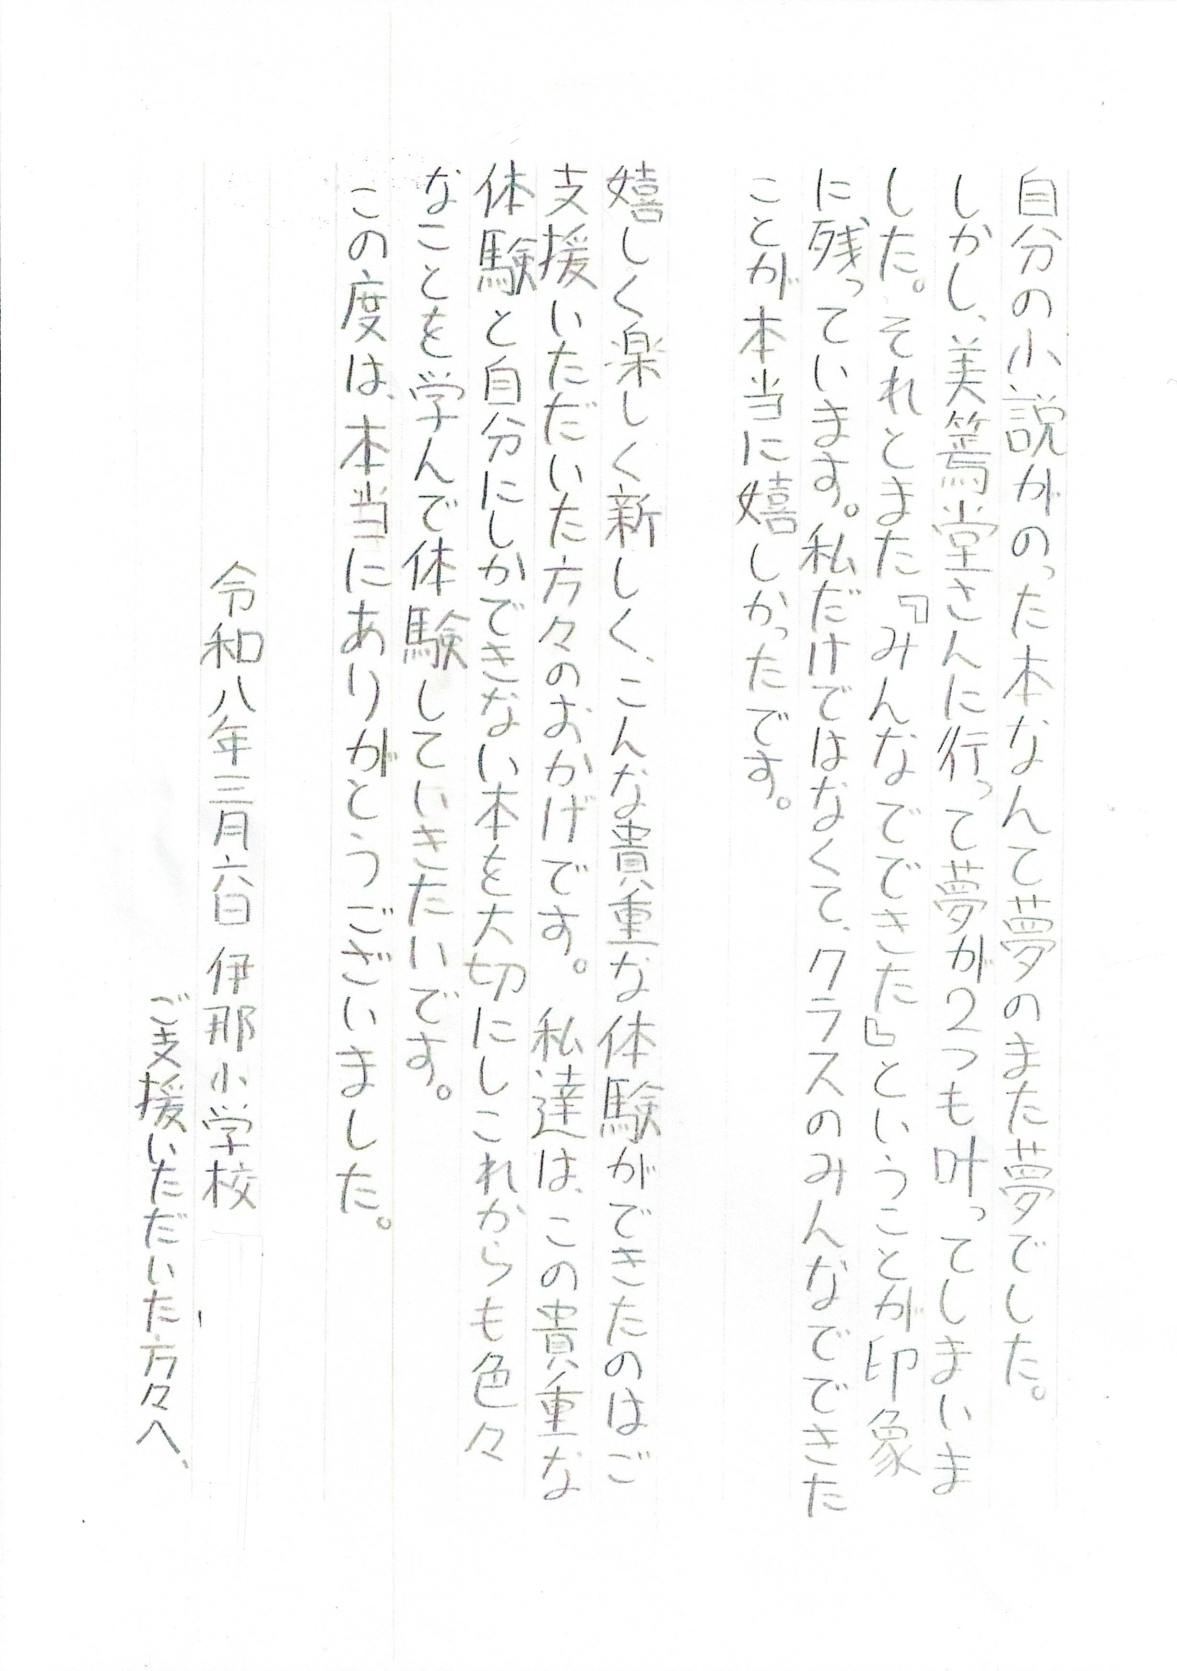 自分の小説がのった本なんて夢のまた夢でした。
しかし、美篶堂さんに行って夢が2つも叶ってしまいま
した。それとまた『みんなでできた』ということが印象
に残っています。私だけではなくて、クラスのみんなでできた
ことが本当に嬉しかったです。
嬉しく楽しく新しく、こんな貴重な体験ができたのはご
支援いただいた方々のおかげです。私達は、この貴重な
体験と自分にしかできない本を大切にしこれからも色々
なことを学んで体験していきたいです。
この度は、本当にありがとうございました。
令和八年三月六日 伊那小学校
ご支援いただいた方々へ、